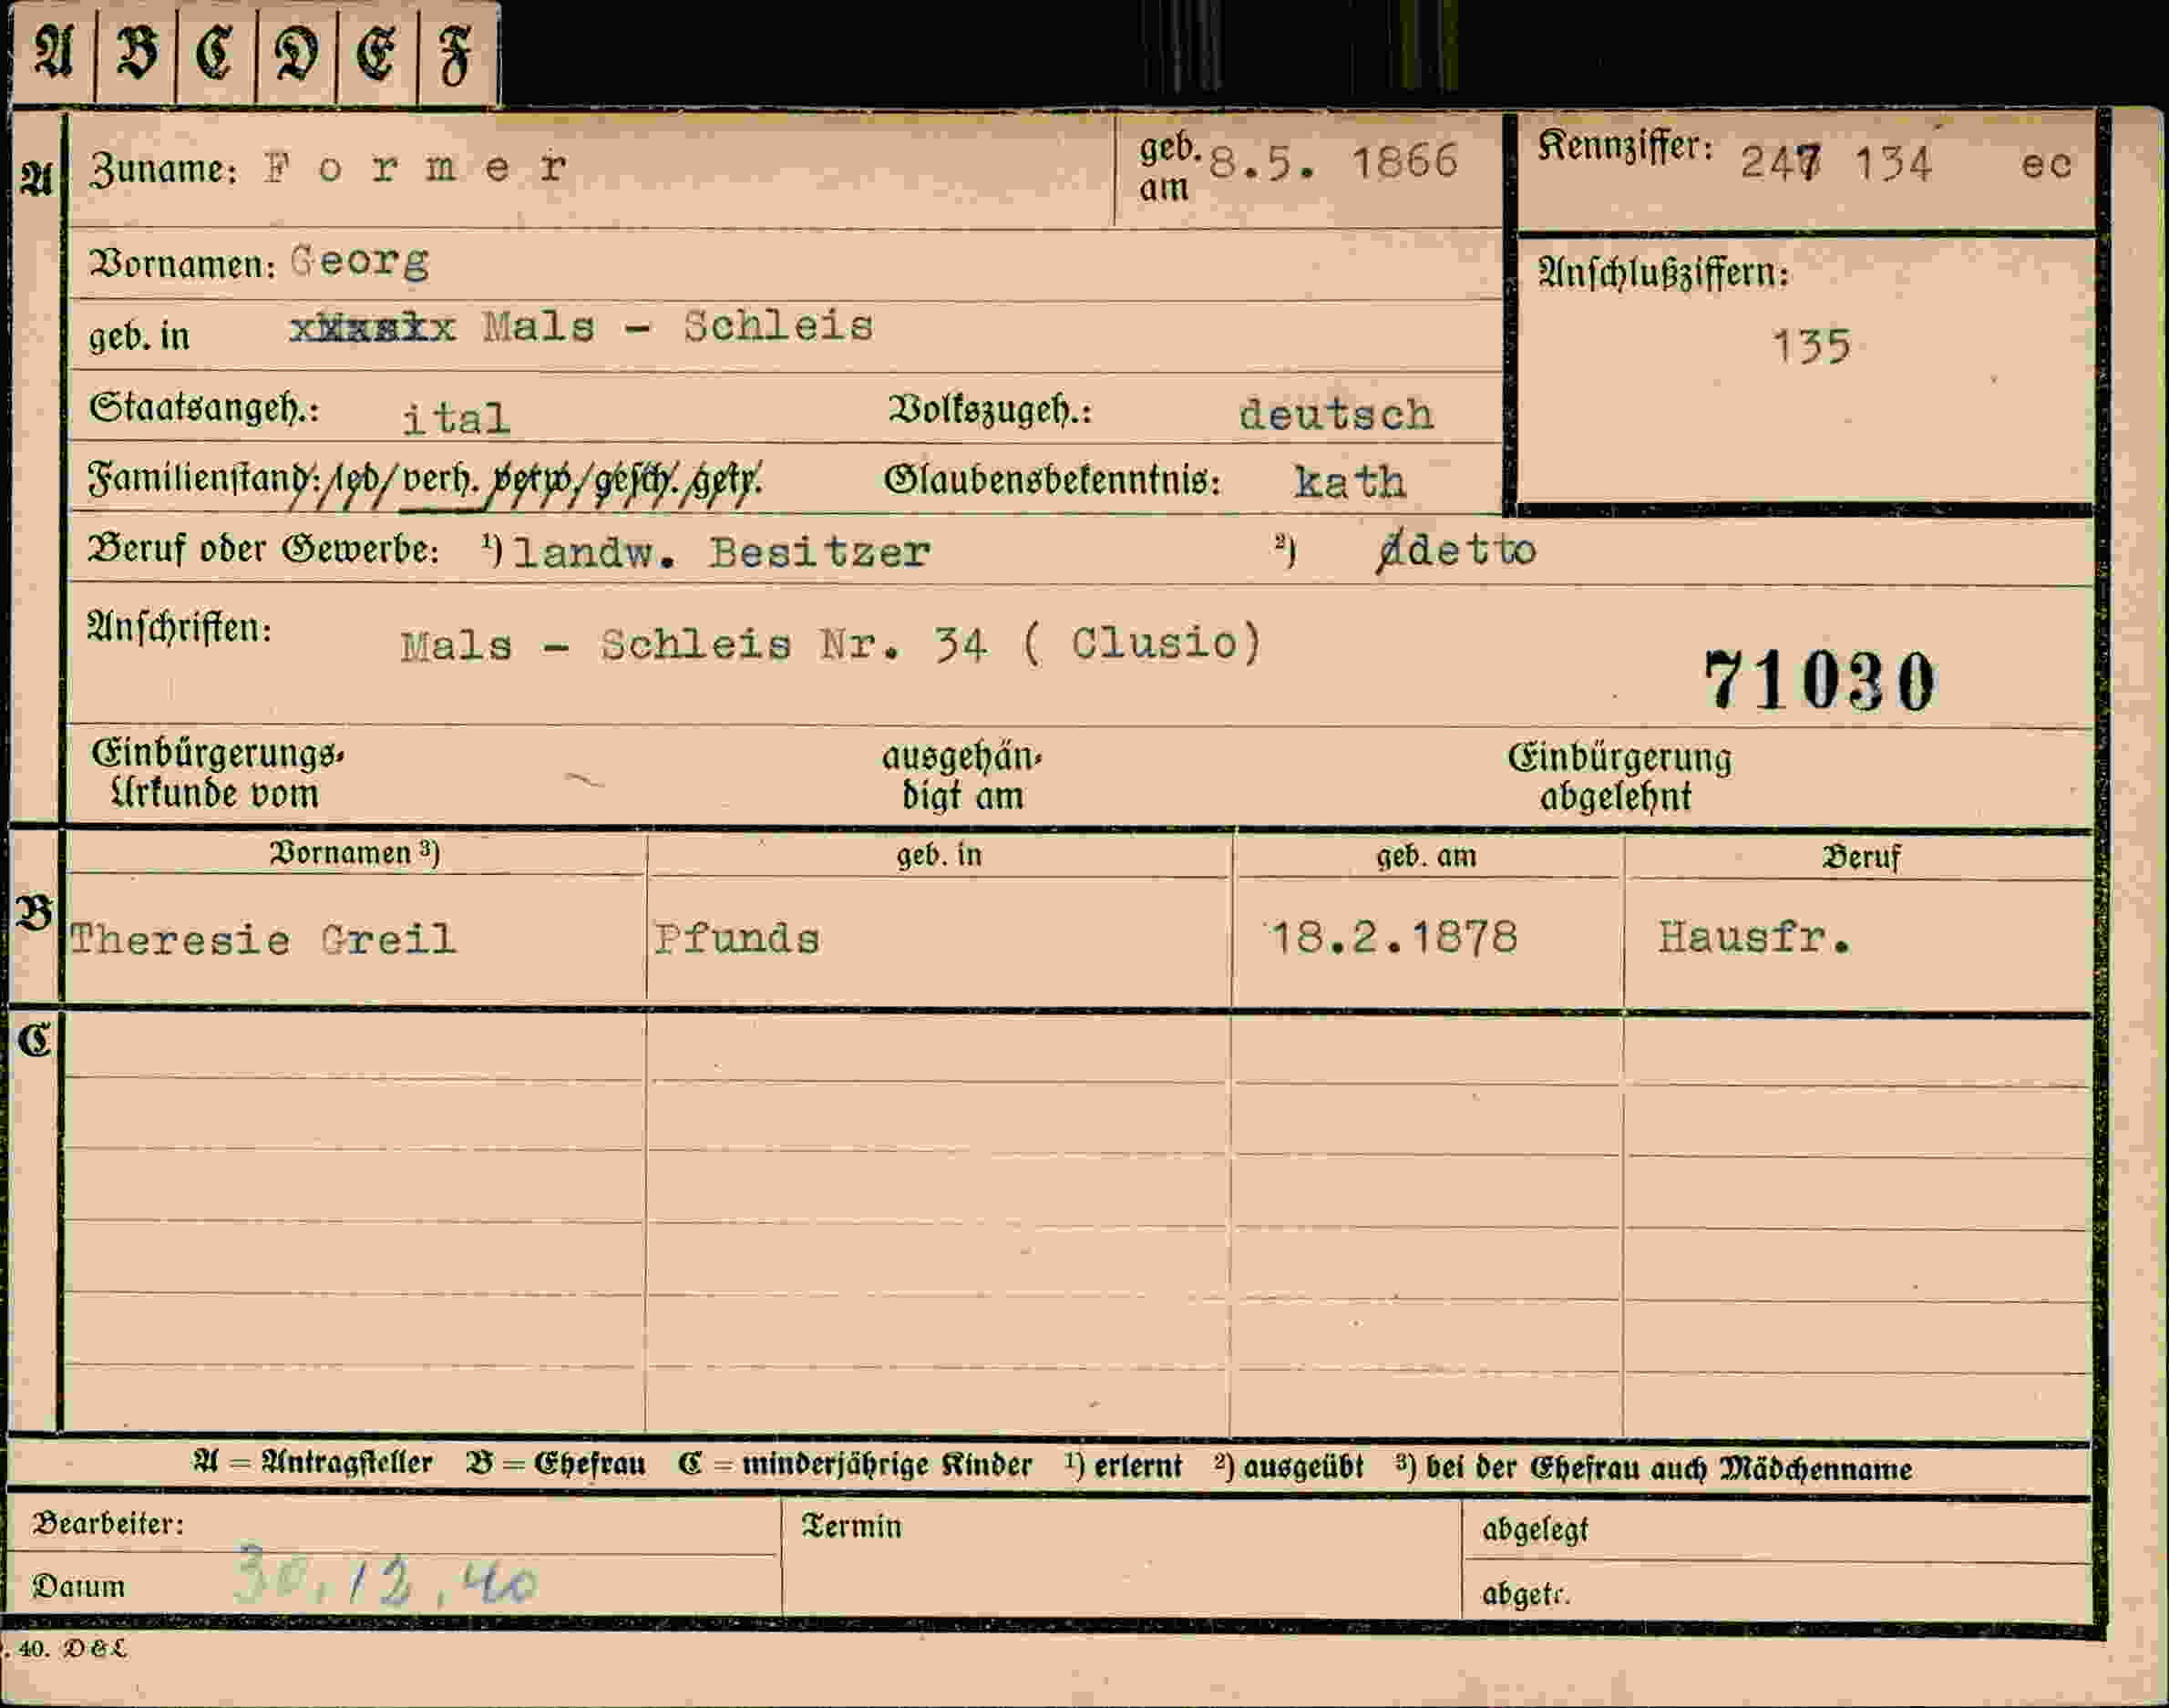 A B C D E F
A Zuname: Former geb. am 8.5. 1866 Kennziffer: 247 134 ec
Vornamen: Georg
Anschlußziffern:
geb. in Mals - Schleis
135
Staatsangeh.: ital Volkszugeh.: deutsch
Familienstand: led/verh. verw./gesch./getr. Glaubensbekenntnis: kath
Beruf oder Gewerbe: ¹) landw. Besitzer ²) detto
Anschriften: Mals - Schleis Nr. 34 ( Clusio)
71030
Einbürgerungs- ausgehän- Einbürgerung
Urkunde vom digt am abgelehnt
Vornamen ³) geb. in geb. am Beruf
B Theresie Greil Pfunds 18.2.1878 Hausfr.
C
A = Antragsteller B = Ehefrau C = minderjährige Kinder ¹) erlernt ²) ausgeübt ³) bei der Ehefrau auch Mädchenname
Bearbeiter: Termin abgelegt
Datum 30.12.40 abgetr.
. 40. D & L